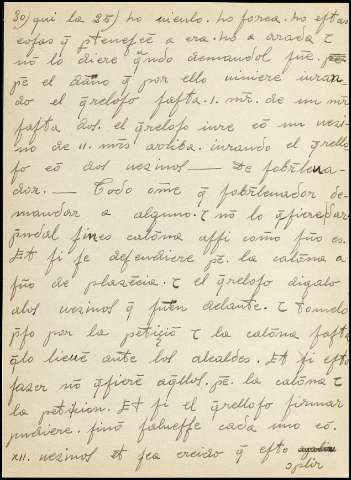 30) qui la 25) ho uiculo. ho forca. ho estas
cosas q̃ ptenescẽ a era. ho a arada τ
nõ lo diere q̃ndo demandol fue.
pe el daño q̃ por ello uiniere iuran_
do el q̃reloso fasta .I. mr̃. de un mr̃
fasta dos. el q̃reloso iure cõ un uezi
no de II. mrs arriba. iurando el q̃relo
so cõ dos uezinos — De sobrleua_
dor. — Todo ome q̃ sobrleuador de_
mandar a alguno. τ no lo q̃siere dar
p̃ndal sines calõnna assi como fuo es.
Et si se defendiere pe. la calõna a
fuo de plazẽcia. τ el q̃relloso digalo
alos uezinos q̃ fuen delante. τ tomelo
p̃so por la petiçiõ τ la calõna fasta
q̃lo lieue ante los alcaldes. Et si esto
fazer nõ q̃sierẽ aq̃llos. pe. la calõna τ
la petiçion. Et si el q̃relloso firmar
pudiere. sino saluesse cada uno cõ.
XII. uezinos et sea creido q̃ esto
ɔplir